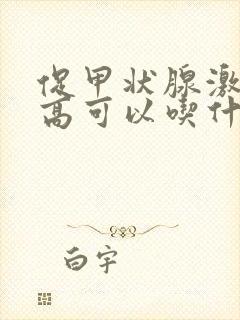 促甲状腺激
高可以喫什
白宇